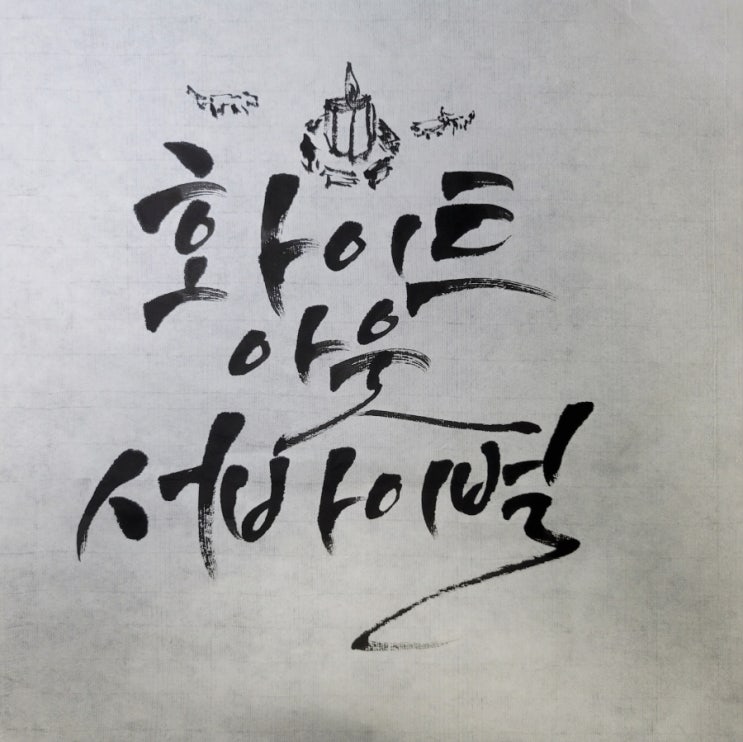 화이트
아웃
서바이벌